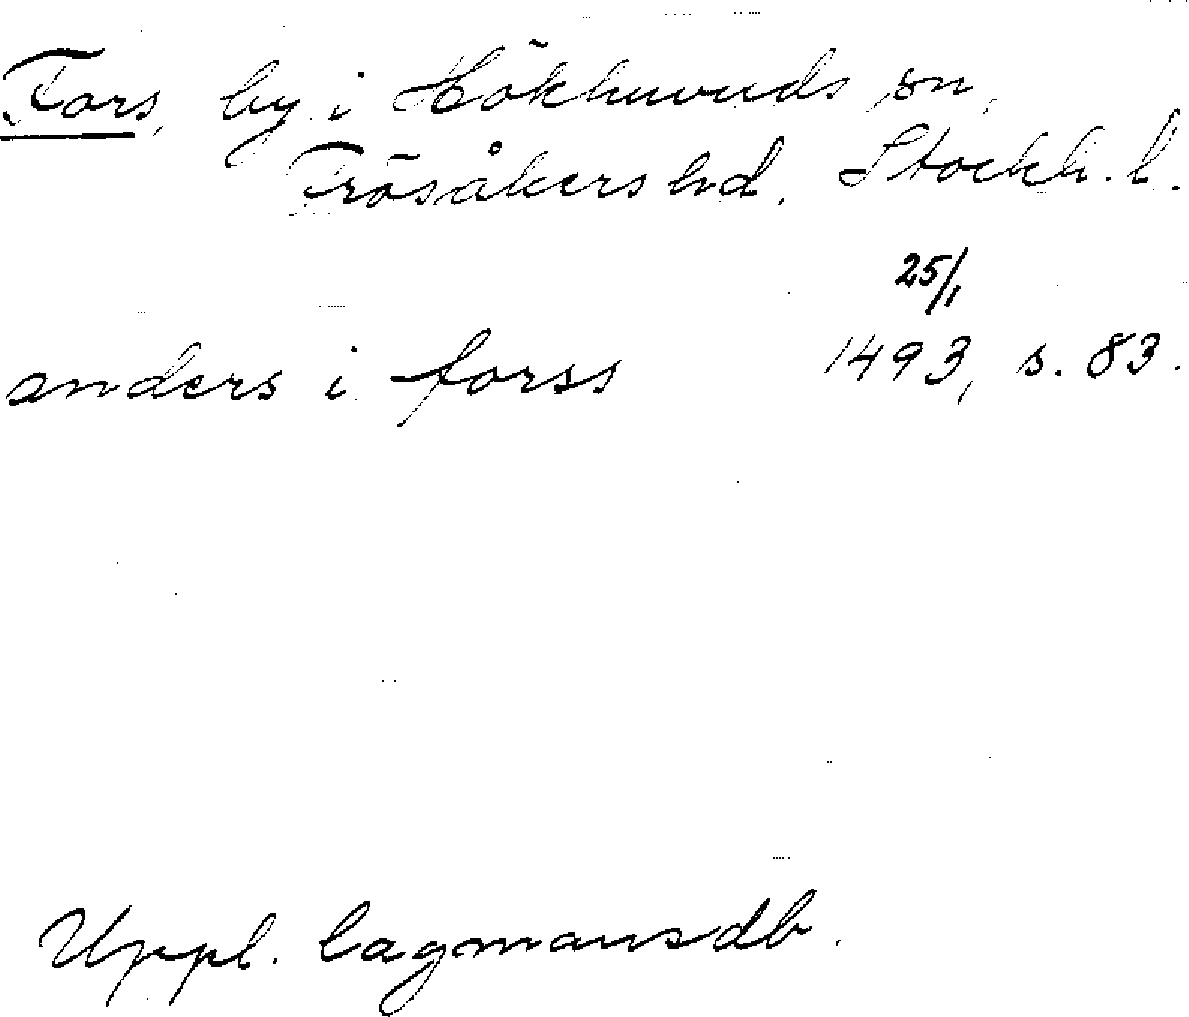 Fors, by i Hökhuvuds sn,
Frösåkers hd. Stockh. l.
25/1
anders i forss 1493, s. 83.
Uppl. lagmansdb.